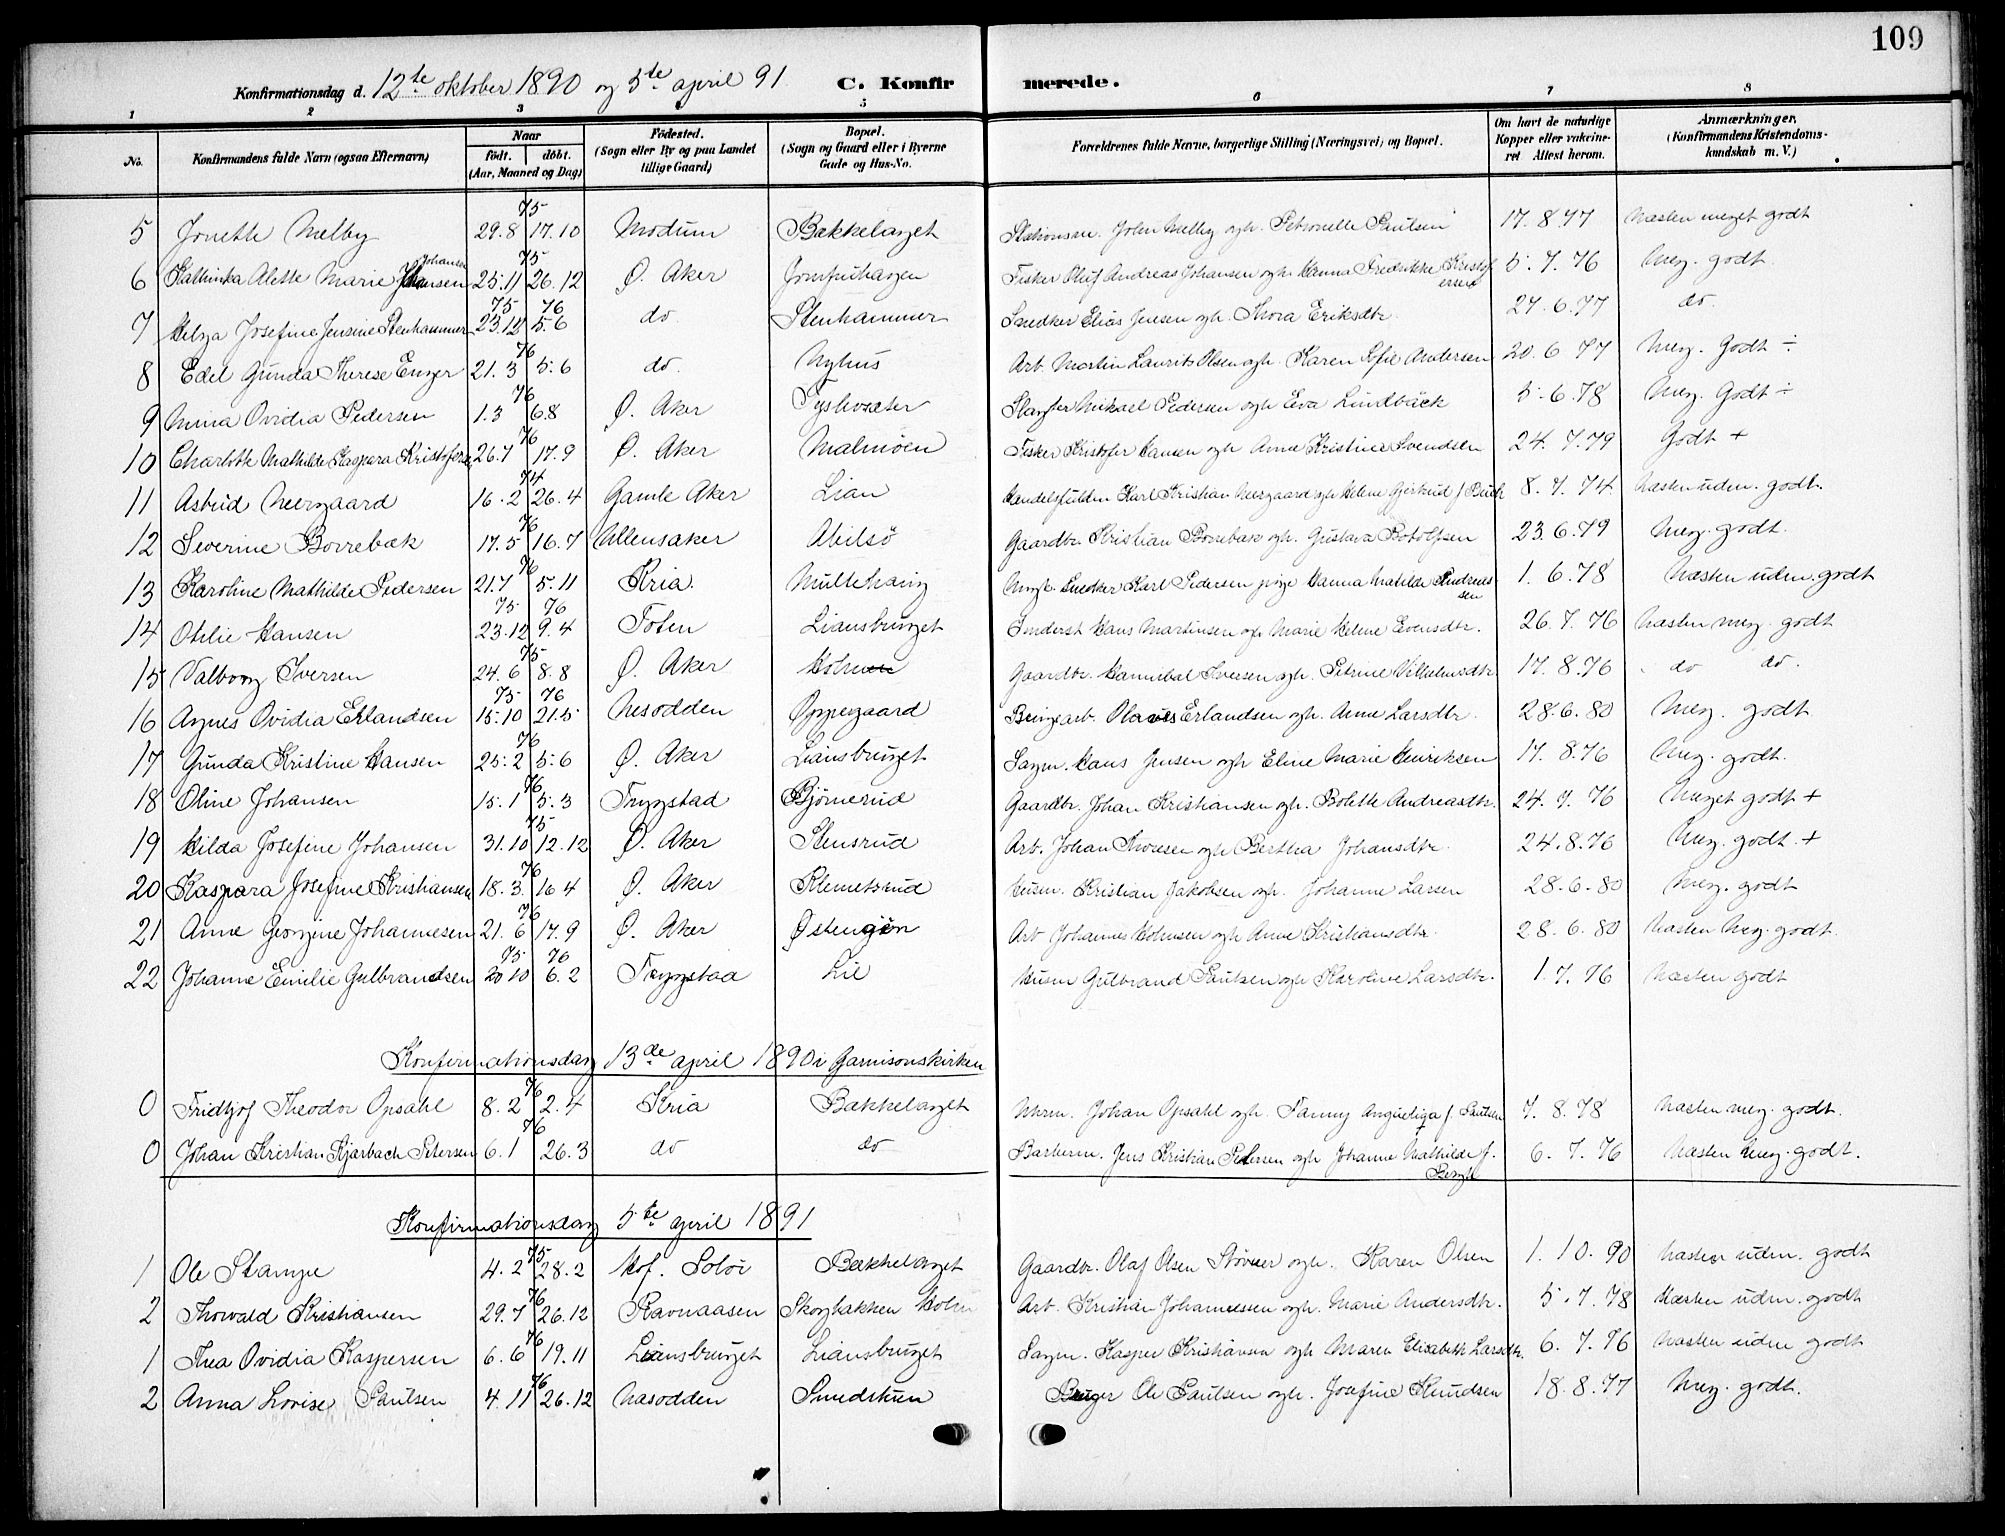 109
Konfirmationsdag d. 12te oktober 1890 og 5te april 91 C. Konfirmerede.
1 2 3 4 5 6 7 8
No. Konfirmandens fulde Navn (ogsaa Efternavn) Naar født. døbt. (Aar, Maaned og Dag) Fødested. (Sogn eller By og paa Landet tillige Gaard) Bopæl. (Sogn og Gaard eller i Byerne Gade og Hus-No. Forældrenes fulde Navne, borgerlige Stilling (Næringsvei) og Bopæl. Om havt de naturlige Kopper eller vakcineret Attest herom. Anmærkninger. (Konfirmandens Kristendomskundskab m. V.)
5 Jonette Melby 29.8 75 17.10 Modum Bækkelaget Stationsm. John Melby og h. Petronelle Paulsen 17.8.77 Næsten meget godt
6 Kathinka Alette Marie Johansen 25.11 75 26.12 Ø. Aker Jomfruhagen Fisker Oluf Andreas Johansen og h. Hanna Fredrikke Kristofersen 5.7.76 Meg. godt.
7 Helga Josefine Jensine Stenhammer 75 23.12 76 5.6 do Stenhammer Snedker Elias Jensen og h. Thora Eriksdtr. 27.6.77 do.
8 Edel Gunda Therese Enger 21.3 76 5.6 do. Nyhus Arb. Martin Laurits Olsen og h. Karen Sofie Andersen 20.6 77 Meg. Godt ÷
9 Mina Ovidia Pedersen 1.3 76 6.8 Ø. Aker Slagter Mikael Pedersen og h Eva Lindbäck 5.6.78 Meg. Godt ÷
10 Charlotte Mathilde Kaspara Kristofersen 26.7 76 17.9 Ø. Aker Malmøen Fisker Kristofer Hansen og h Anne Kristine Svendsen 24.7.79 Godt +
11 Astrid Neergaard 16.2 74 26.4 Gamle Aker Lian Handelsfuldm. Karl Kristian Neergaard og h Helene Gjertrud f. Buch 8.7.74 Næsten udm. godt.
12 Severine Borrebæk 17.5 76 16.7 Ullensaker Abilsø Gaardbr. Kristian Borrebæk og h. Gustava Rotolfsen 23.6.79 Meg. godt.
13 Karoline Mathilde Pedersen 21.7 76 5.11 Kria. Multehaug Ungk. Snedker Karl Pedersen pige Hanna Matilde Andreassen 1.6.78 Næsten udm. godt
14 Otilie Hansen 75 23.12 76 9.4 Toten Liansbruget Inderst Hans Martinsen og h Marie Helene Evensdtr. 26.7.76 Næsten meg. godt
15 Valborg Iversen 24.6 75 8.8 Ø. Aker Gaardbr. Hannibal Iversen og h. Petrine Vilhelmsdtr. 17.8.76 do do.
16 Agnes Ovidia Erlandsen 75 15.10 76 21.5 Nesodden Oppegaard Olaves Erlandsen og h. Anne Larsdtr. 28.6.80 Meg. godt
17 Gunda Kristine Hansen 25.2 76 5.6 Ø. Aker Liansbruget Sagm. Hans Jensen og h Eline Marie Henriksen 17.8.76 Meg. godt.
18 Oline Johansen 15.1 76 5.3 Trygstad Bjørnerud Gaardbr. Johan Kristiansen og h. Bolette Andreasdtr. 24.7.76 Meget godt +
19 Hilda Josefine Johansen 31.10 75 12.12 Ø. Aker Stensrud Arb. Johan Thoresen og h Bertha Johansdtr. 24.8.76 Meg. godt +
20 Kaspara Josefine Kristiansen 18.3 76 16 4 Ø. Aker Klemetsrud Husm. Kristian Jakobsen og h. Johanne Larsen 28.6.80 Meg. godt
21 Anne Georgine Johannesen 21.6 76 17.9 Ø. Aker Østengjen Arb Johannes Holmsen og h Anne Kristiansdtr. 28.6.80 Næsten Meg. godt.
22 Johanne Emilie Gulbrandsen 75 20 10 76 6.2 Trygstad Lie Husm Gulbrand Paulsen og h Karoline Larsdtr. 1.7.76 Næsten godt
Konfirmationsdag 13de april 1890 i Garnisonskirken
0 Fridtjof Theodor Opsahl 8.2 76 2.4 Kria Bækkelaget Urm. Johan Opsahl og h. Fanny Angueliga f. Paulsen 7.8.78 Næsten meg. godt.
0 Johan Kristian Kjærbach Petersen 6.1 76 26.3 do do Barberm. Jens Kristian Petersen og h Johanne Mathilde f. Bergh 6.7.76 Næsten meg. godt.
Konfirmationsdag 5te april 1891
1 Ole Stampe 4.2 75 28.2 Hof. Solør Bækkelaget Gaardbr. Olaf Olsen Støver og h. Karen Olsen 1.10.90 Næsten udm. godt
2 Thorvald Kristiansen 29.7 76 26.12 Ravnaasen Skogbakken Holm Arb. Kristian Johannessen og h. Marie Andersdtr. 5.7.78 Næsten udm. godt
1 Thea Ovidia Kaspersen 6.6 76 19.11 Liansbruget Liansbruget Sagm. Kasper Kristiansen og h Maren Elisabeth Larsdtr. 6.7.76 Næsten udm godt
2 Anna Lovise Paulsen 4.11 76 26.12 Næsodden Smedstuen Ole Paulsen og h. Josefine Knudsen 18.8.77 Meg. godt.